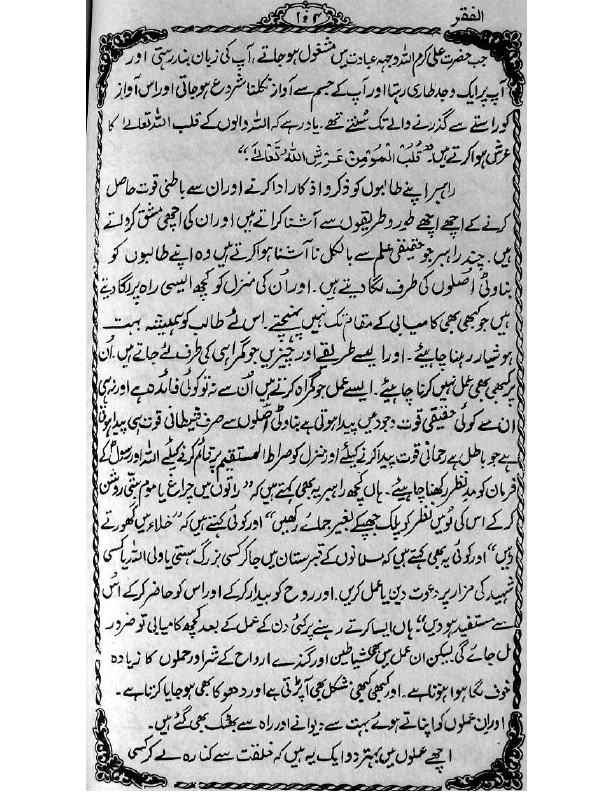 الفقر
۱۵۴
جب حضرت علی کرم اللہ وجہہ عبادت میں مشغول ہو جاتے، آپ کی زبان بند رہتی اور
آپ پر ایک وجد طاری رہتا اور آپ کے جسم سے آواز نکلنا شروع ہو جاتی اور اس آواز
کو راستے سے گذرنے والے تک سُنتے تھے۔ یاد رہے کہ اللہ والوں کے قلب اللہ تعالیٰ کا
عرش ہوا کرتے ہیں۔ "قُلبُ الْمَوْمِنْ عَرْشُ اللہُ تَعَالٰے"
راہبر اپنے طالبوں کو ذکر و اذکار ادا کرنے اور ان سے باطنی قوت حاصل
کرنے کے اچھے اچھے طور و طریقوں سے آشنا کراتے ہیں اور ان کی اچھی مشق کرولتے
ہیں۔ چند راہبر جو حقیقی علم سے بالکل نا آشنا ہوا کرتے ہیں وہ اپنے طالبوں کو
بناوٹی اصلوں کی طرف لگا دیتے ہیں۔ اور اُن کی منزل کو کچھ ایسی راہ پر لگا دیتے
ہیں جو کبھی بھی کامیابی کے مقام تک نہیں پہنچتے۔ اس لئے طالب کو ہمیشہ بہت
ہوشیار رہنا چاہیئے۔ اور ایسے طریقے اور چیزیں جو گمراہی کی طرف لے جاتے ہیں، اُن
پر کبھی بھی عمل نہیں کرنا چاہیئے۔ ایسے عمل جو گمراہ کرتے ہیں اُن سے نہ تو کوئی فائدہ ہے اور نہ ہی
ان سے کوئی حقیقی قوت وجود میں پیدا ہوتی ہے بناوٹی اصلوں سے صرف شیطانی قوت ہی پیدا ہوتی
ہے جو باطل ہے رحمانی قوت پیدا کرنے کیلئے اور منزل کو صراط المستقیم پر قائم کرنے کیلئے اللہ اور رسولؐ کے
فرمان کو مدِ نظر رکھنا چاہیئے۔ ہاں کچھ راہبر یہ بھی کہتے ہیں کہ "راتوں میں چراغ یا موم بتی روشن
کر کے اس کی لَو میں نظر کو پلک جھپکے بغیر جمائے رکھیں" اور کوئی کہتے ہیں کہ "خلاء میں گھورتے
رہیں" اور کوئی یہ بھی کہتے ہیں کہ مسلمانوں کے قبرستان میں جا کر کسی بزرگ ہستی یا ولی اللہ یا کسی
شہید کی مزار پر دعوت دین یا عمل کریں۔ اور روح کو بیدار کر کے اور اس کو حاضر کر کے اُس
سے مستفید ہو دیں" ہاں ایسا کرتے رہنے پر کئی دن کے عمل کے بعد کچھ کامیابی تو ضرور
مل جائے گی لیکن ان عمل میں بھی شیاطین اور گندے ارواح کے شر اور حملوں کا زیادہ
خوف لگا ہوا ہوتا ہے۔ اور کبھی کبھی مشکل بھی آ پڑتی ہے اور دھوکا بھی ہو جایا کرتا ہے۔
اور ان عملوں کو اپناتے ہوئے بہت سے دیوانے اور راہ سے بھٹک بھی گئے ہیں۔
اچھے عملوں میں بہتر دو ایک یہ ہیں کہ خلقت سے کنارہ لے کر کسی